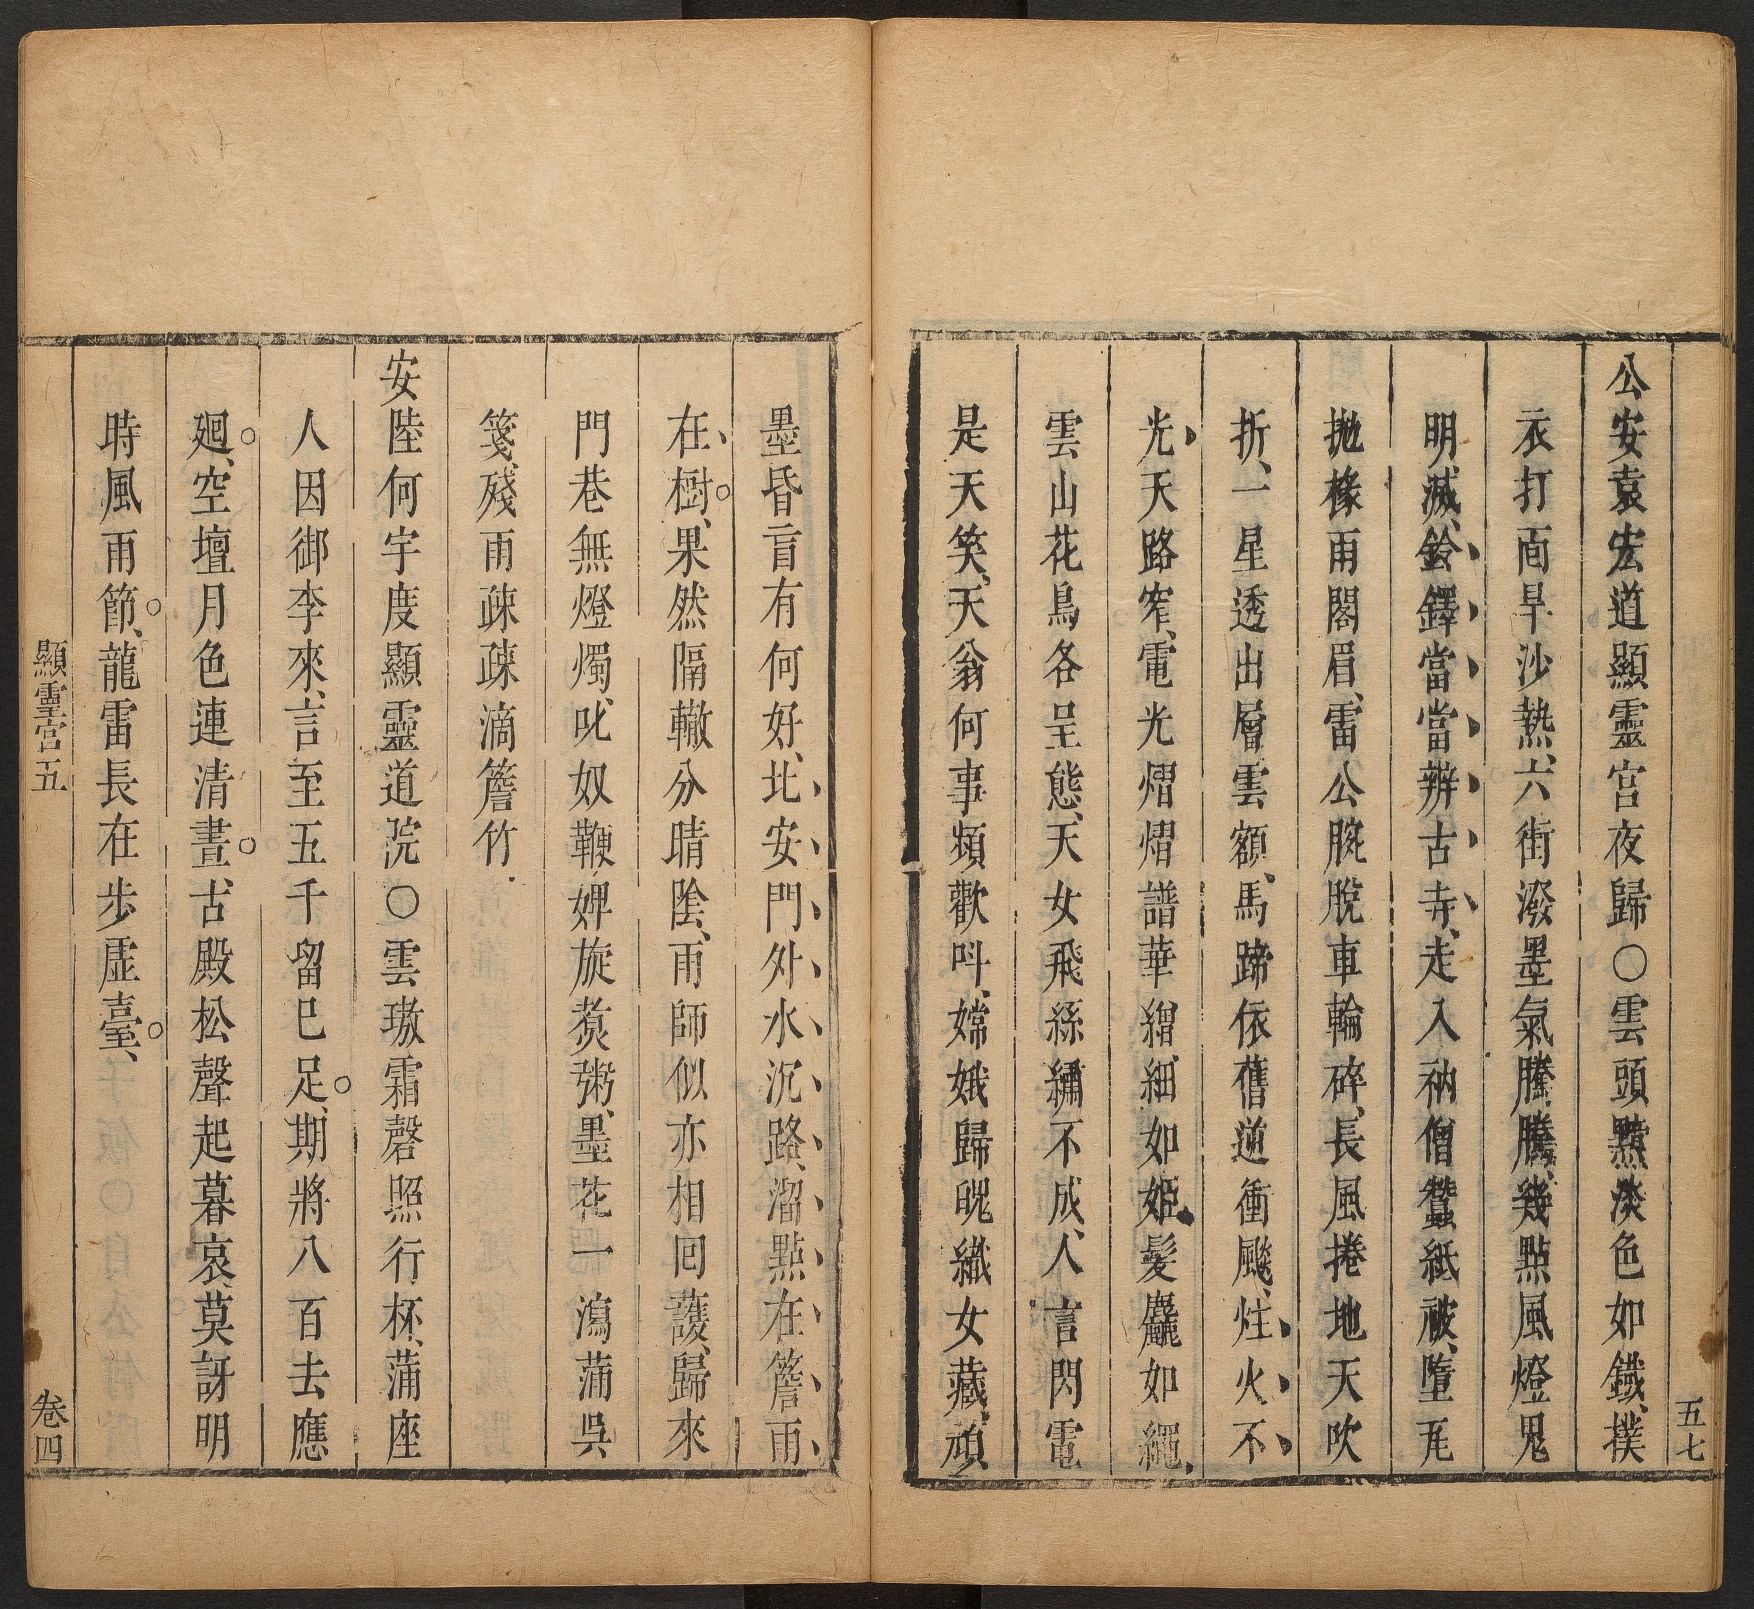 五七
公安袁宏道顯靈宮夜歸○雲頭黰淡色如鐵撲
衣打面旱沙熱六街潑墨氣騰騰幾點風燈鬼
明滅鈴鐸當當辨古寺走入衲僧蠶紙被墮瓦
拋椽雨閣眉雷公腕脫車輪碎長風捲地天吹
折一星透出層雲額馬蹄依舊逆衝飈炷火不
光天路窄電光熠熠譜華繒細如姬髮麤如繩
雲山花鳥各呈態天女飛絲繡不成人言閃電
是天笑天翁何事頻歡呌嫦娥歸晩織女藏頑
墨昏盲有何好北安門外水沉路溜點在簷雨
在樹果然隔轍分晴陰雨師似亦相囘護歸來
門巷無燈燭叱奴鞭婢旋煑粥墨花一瀉蒲吳
箋殘雨疎疎滴簷竹
安陸何宇度顯靈道院○雲璈霜磬照行杯蒲座
人因御李來言至五千留巳足期將八百去應
廻空壇月色連清晝古殿松聲起暮哀莫訝明
時風雨節龍雷長在步虛臺
顯靈宮五
卷四